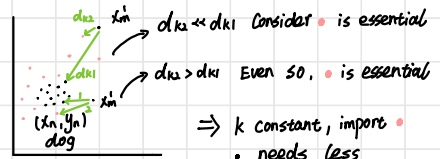 dk2 x'm
dk2 << dk1 Consider • is essential
dk1
dk2 > dk1 Even so, • is essential
1 x'm
2
(xn, yn)
dog
⇒ k constant, import •
• needs less